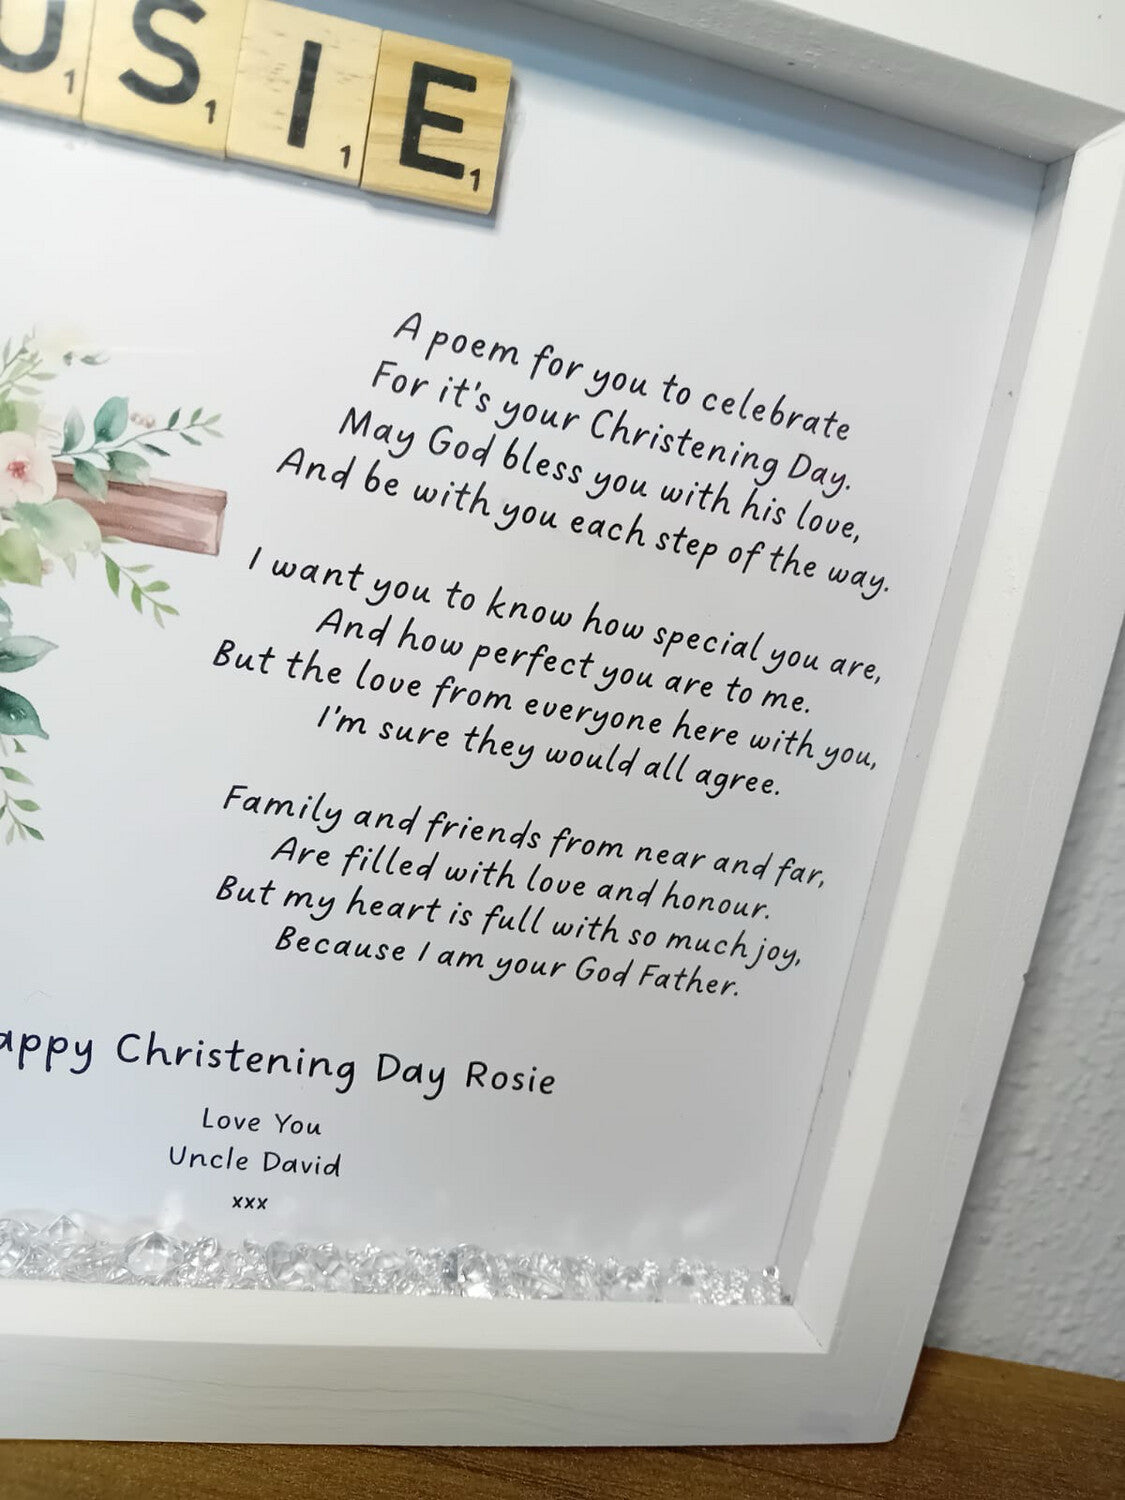 O S I E
1 1 1 1
A poem for you to celebrate
For it's your Christening Day.
May God bless you with his love,
And be with you each step of the way.
I want you to know how special you are,
And how perfect you are to me.
But the love from everyone here with you,
I'm sure they would all agree.
Family and friends from near and far,
Are filled with love and honour.
But my heart is full with so much joy,
Because I am your God Father.
appy Christening Day Rosie
Love You
Uncle David
xxx